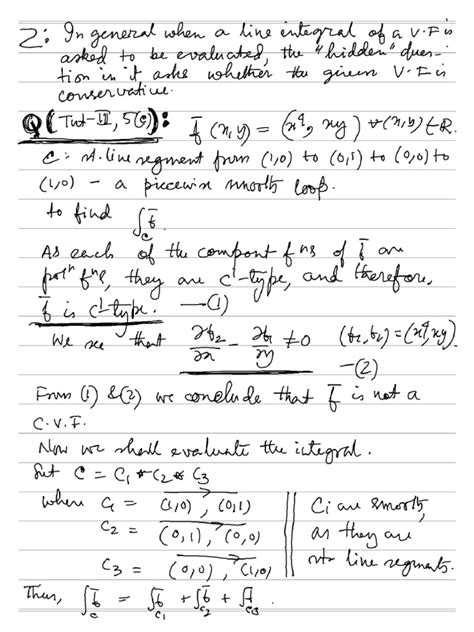 2: In general when a line integral of a V.F is
asked to be evaluated, the "hidden" ques-
tion in it asks whether the given V.F is
conservative.
Q (Tut-II, 5(c)): f̄(x,y) = (x⁴, xy) ∀(x,y) ∈ R.
C: st. line segment from (1,0) to (0,1) to (0,0) to
(1,0) – a piecewise smooth loop.
to find ∫_C f̄.
As each of the component fⁿˢ of f̄ are
polⁿ fⁿˢ, they are C¹-type, and therefore,
f̄ is C¹-type. —(1)
We see that ∂f₂/∂x - ∂f₁/∂y ≠ 0 (f₁, f₂) = (x⁴, xy)
—(2)
From (1) & (2) we conclude that f̄ is not a
C.V.F.
Now we shall evaluate the integral.
Let C = C₁ * C₂ * C₃
where C₁ = (1,0), (0,1) || Ci are smooth,
C₂ = (0,1), (0,0) as they are
C₃ = (0,0), (1,0) st. line segments.
Then, ∫_C f̄ = ∫_C₁ f̄ + ∫_C₂ f̄ + ∫_C₃ f̄.